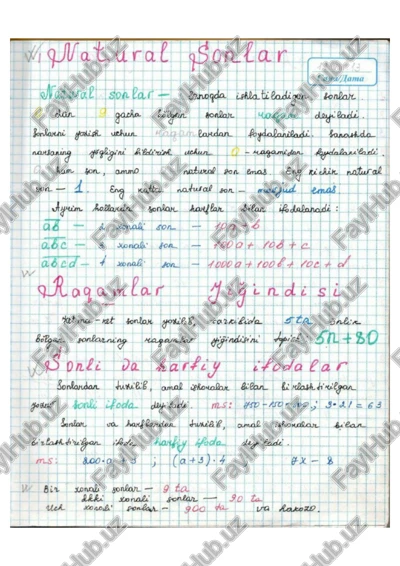 Natural Sonlar
Sana/Data
Natural sonlar — Sanoqda ishlatiladigan sonlar
dan 9 gacha bo'lgan sonlar raqam deyiladi.
Sonlarni yozish uchun raqamlardan foydalaniladi. Sanashda
narsaning yo'qligini bildirish uchun 0 - raqamidan foydalaniladi.
ham son, ammo natural son emas. Eng kichik natural
son — 1. Eng katta natural son — mavjud emas.
Ayrim hollarda sonlar harflar bilan ifodalanadi:
ab — 2 xonali son — 10a + b
abc — 3 xonali son — 100a + 10b + c
abcd — 4 xonali son — 1000a + 100b + 10c + d
Raqamlar Yig'indisi
Ketma-ket sonlar yozilib, tarkibida 5ta
bo'lgan sonlarning raqamlar yig'indisini topish 5n+80
Sonli va harfiy ifodalar
Sonlardan tuzilib, amal ishoralar bilan birlashtirilgan
yozuv sonli ifoda deyiladi. ms: 750-150= ; 3·21=63
Sonlar va harflardan tuzilib, amal ishoralar bilan
birlashtirilgan ifoda harfiy ifoda deyiladi.
ms: 200·a+3 ; (a+3)·4 7x-8
Bir xonali sonlar — 9 ta
Ikki xonali sonlar — 90 ta
Uch xonali sonlar — 900 ta va hokazo.
FaylHub.uz